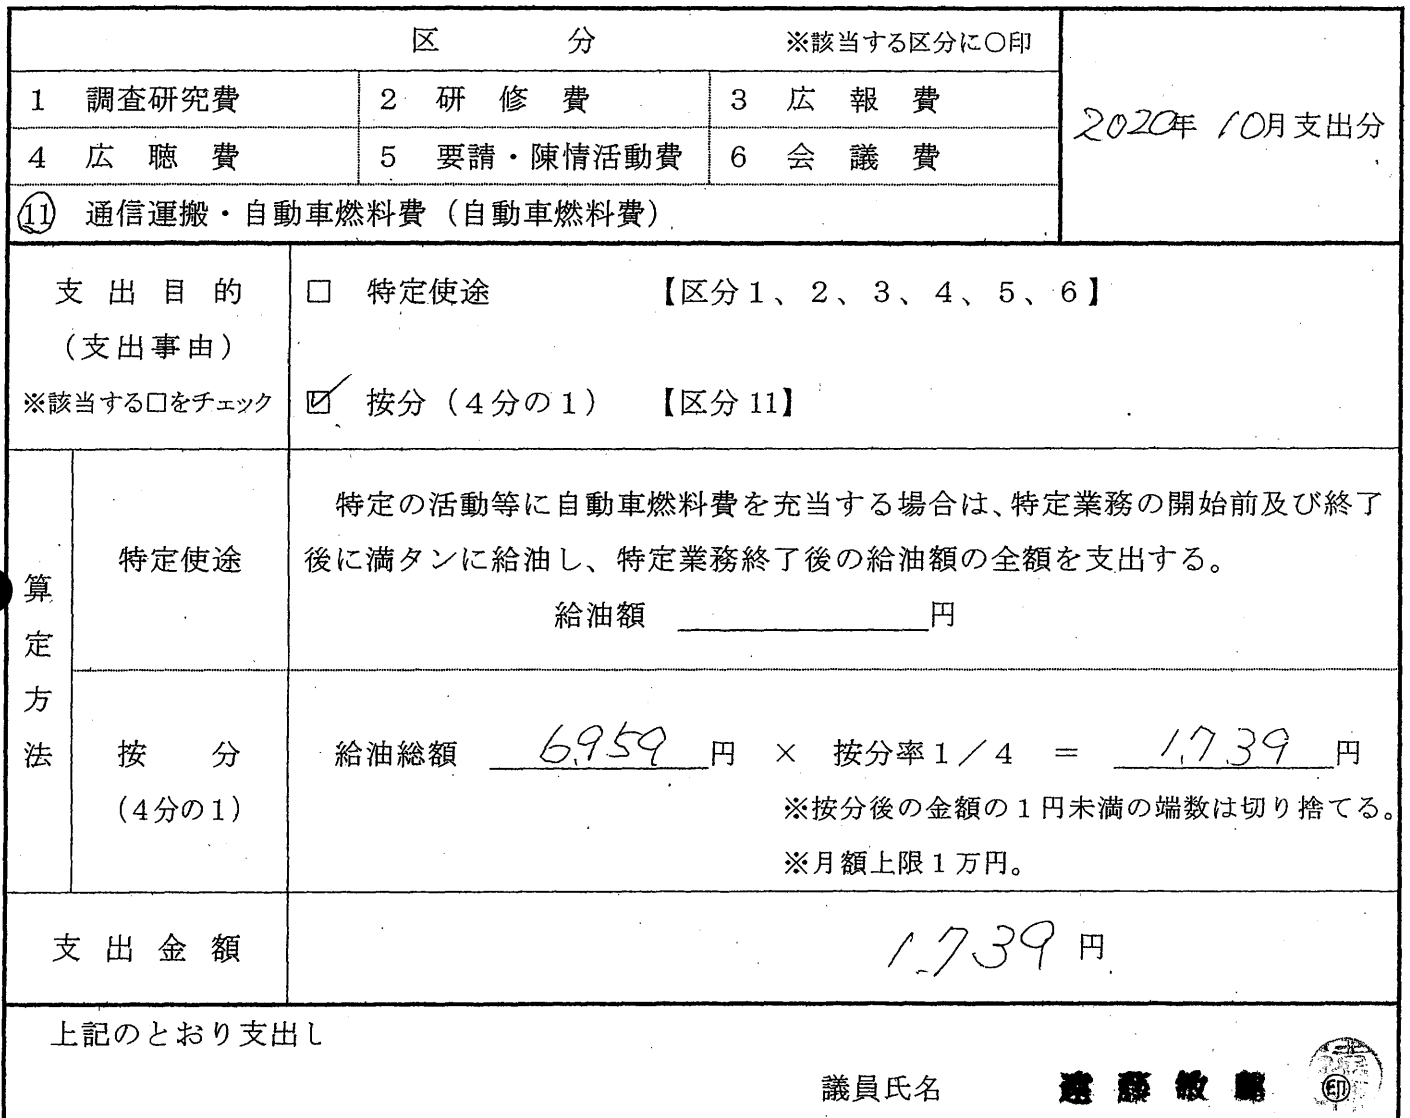 区 分 ※該当する区分に○印
1 調査研究費 2 研修費 3 広報費
2020年 10月支出分
4 広聴費 5 要請・陳情活動費 6 会議費
⑪ 通信運搬・自動車燃料費（自動車燃料費）
支出目的
（支出事由）
※該当する□をチェック
□ 特定使途 【区分1、2、3、4、5、6】
☑ 按分（4分の1） 【区分11】
算定方法
特定使途
特定の活動等に自動車燃料費を充当する場合は、特定業務の開始前及び終了
後に満タンに給油し、特定業務終了後の給油額の全額を支出する。
給油額 円
按分
（4分の1）
給油総額 6,959 円 × 按分率1／4 ＝ 1,739 円
※按分後の金額の1円未満の端数は切り捨てる。
※月額上限1万円。
支出金額 1,739 円
上記のとおり支出し
議員氏名 遠藤敏郎 ㊞